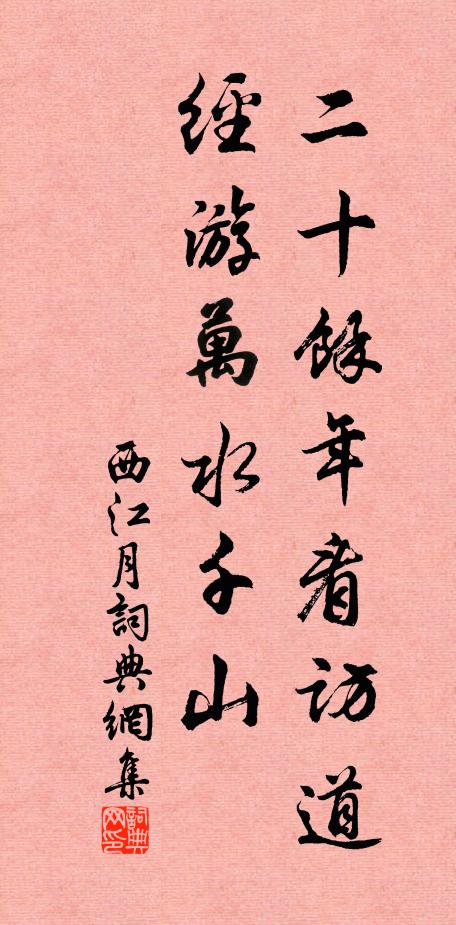 二十餘年看訪道
經游萬水千山
西江月詞典網集
詞典网印